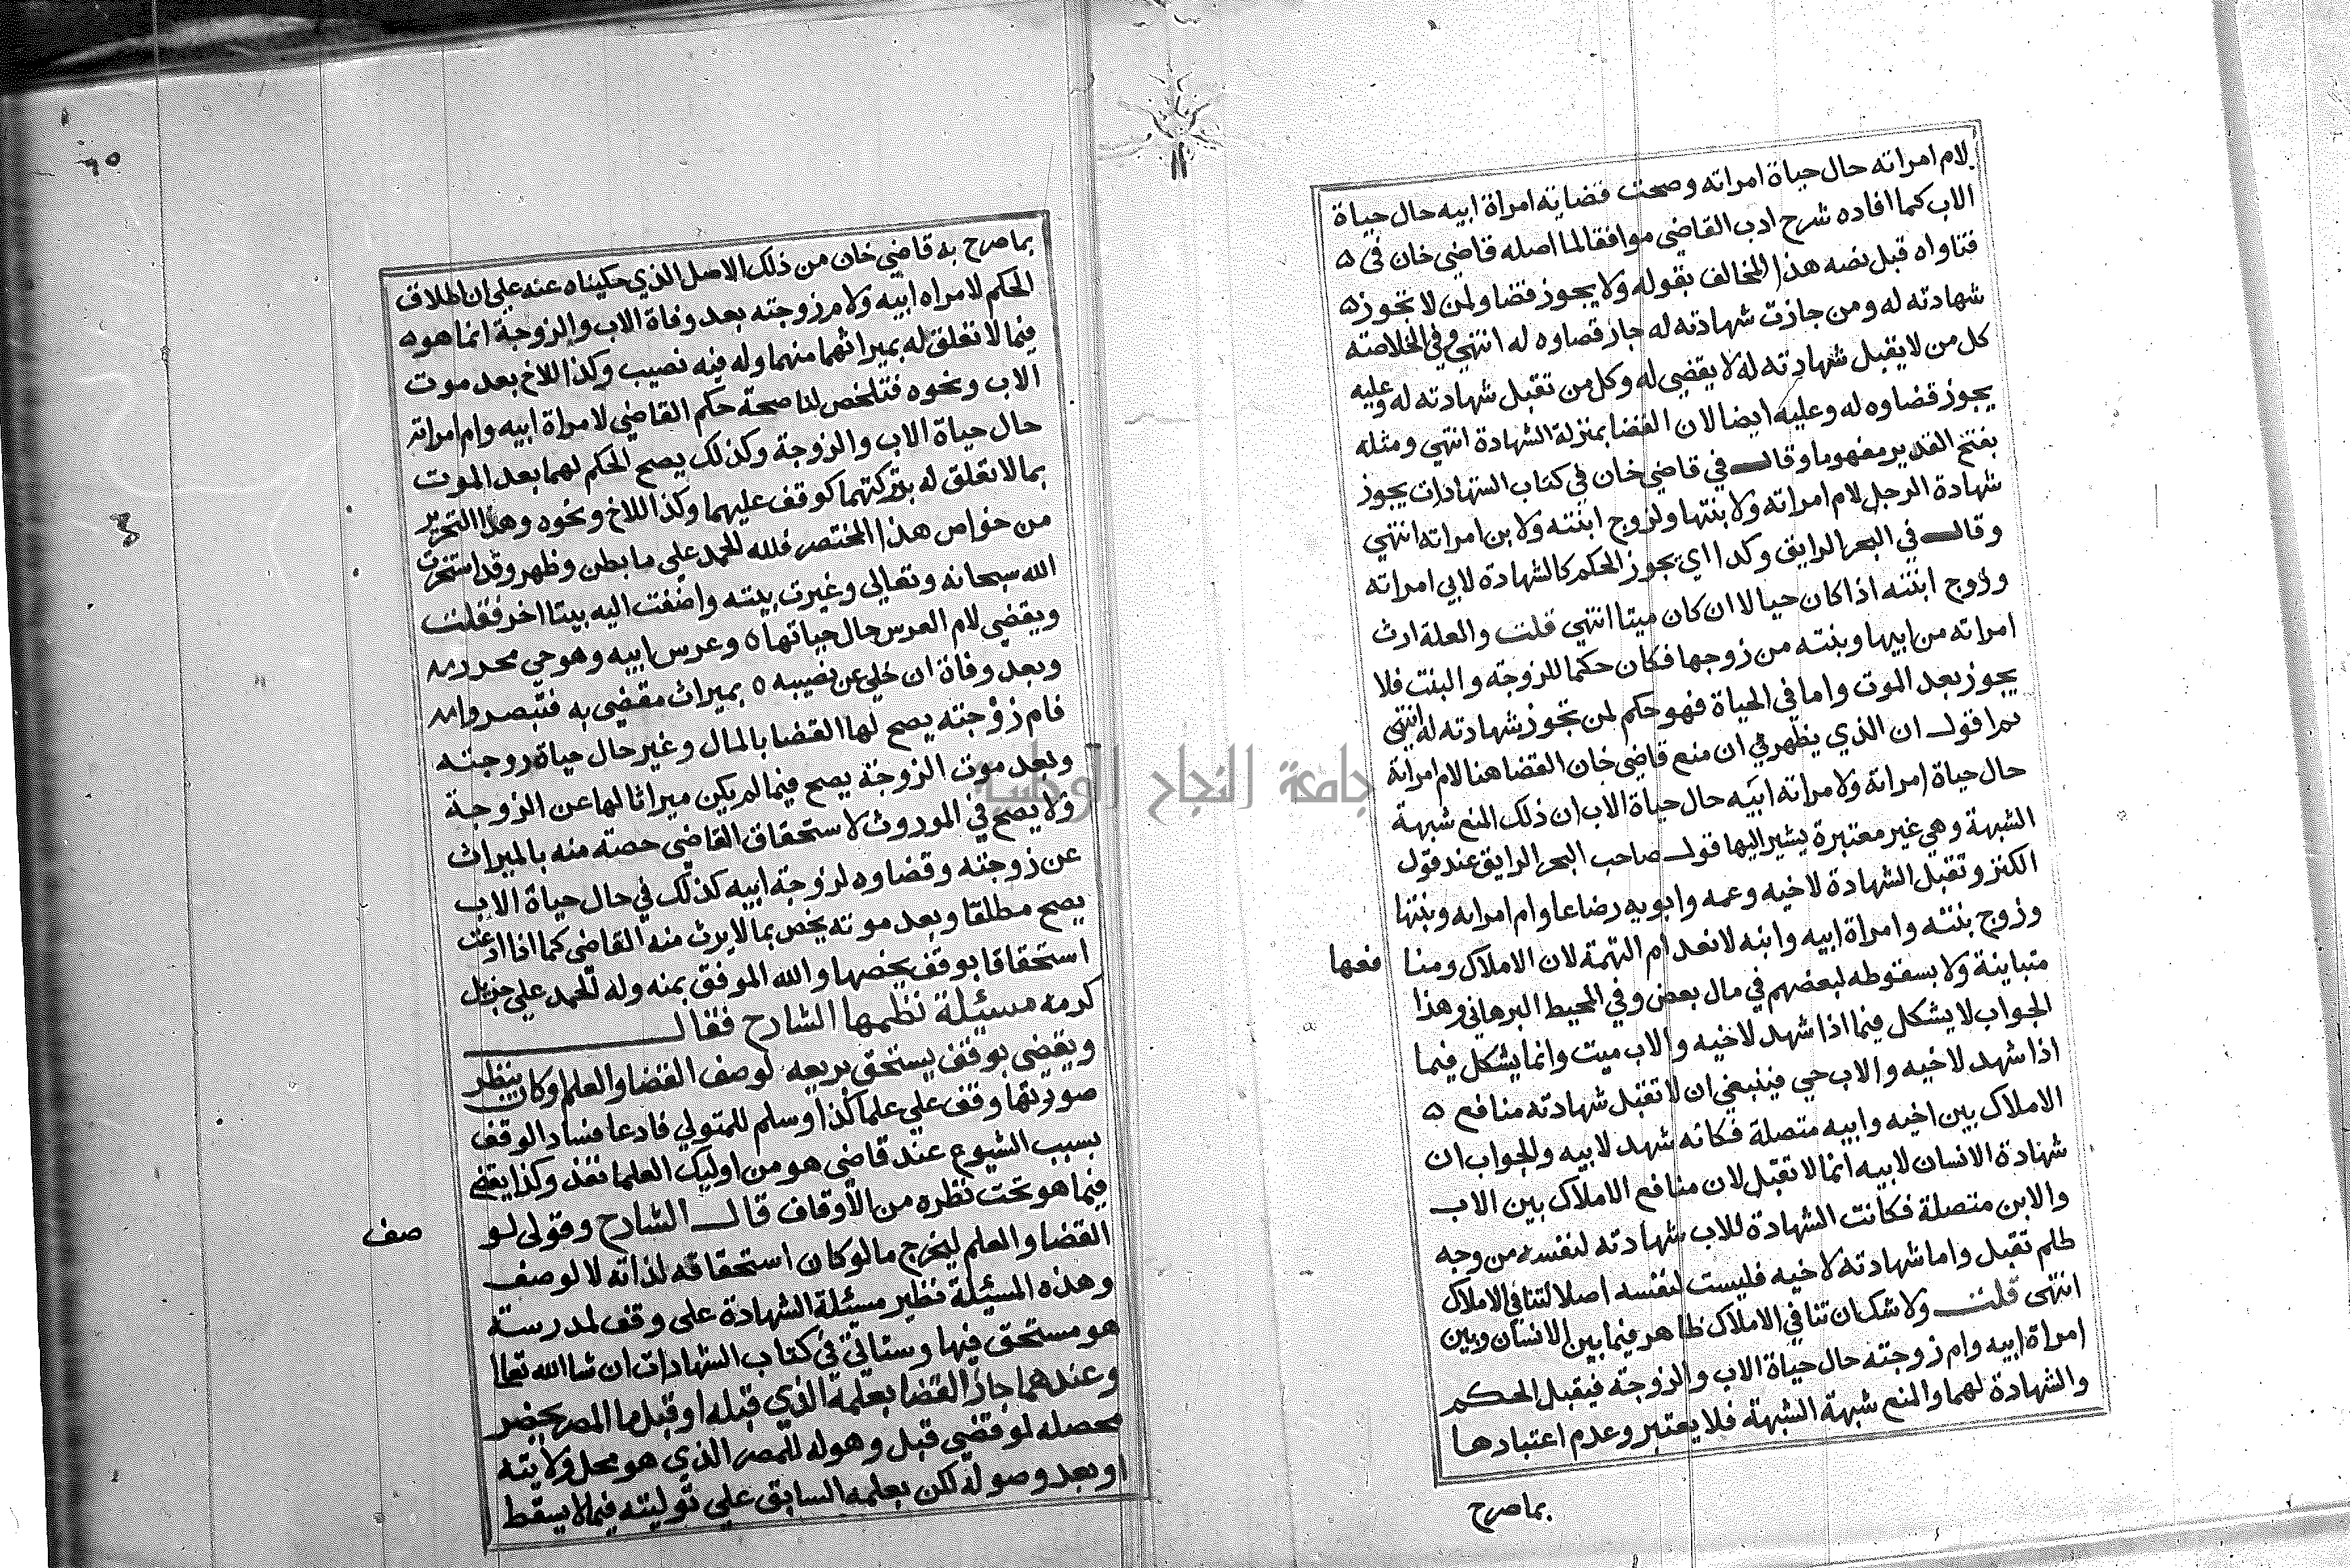 لام امراته حال حياة امراته وصحت قضايه امراة ابيه حال حياة
الاب كما افاده شرح ادب القاضي موافقا لما اصله قاضي خان في
فتاواه قبل نصه هذا المخالف بقوله ولا يجوز قضاوه لمن لا تجوز
شهادته له ومن جازت شهادته له جاز قضاوه له انتهي وفي الخلاصة
كل من لا يقبل شهادته له لا يقضي له وكل من تقبل شهادته له وعليه
يجوز قضاوه له وعليه ايضا لان القضا بمنزلة الشهادة انتهي ومثله
بفتح القدير مفهوما وقال في قاضي خان في كتاب الشهادات يجوز
شهادة الرجل لام امراته ولابنتها ولزوج ابنته ولابن امراته انتهي
وقال في البحر الرايق وكدا اي يجوز الحكم كالشهادة لابي امراته
وزوج ابنته اذا كان حيا لا ان كان ميتا انتهي قلت والعلة ارث
امراته من ابيها وبنته من زوجها فكان حكما للزوجة والبنت فلا
يجوز بعد الموت واما في الحياة فهو حكم لمن تجوز شهادته له انتهي
ثم اقول ان الذي يظهر لي ان منع قاضي خان القضا هنا لام امراتة
حال حياة امراتة ولامراته ابيه حال حياة الاب ان ذلك المنع شبهة
الشبهة وهي غير معتبرة يشير اليها قول صاحب البحر الرايق عند قول
الكنز وتقبل الشهادة لاخيه وعمه وابويه رضاعا وام امراته وبنتها
وزوج بنته وامراة ابيه وابنه لانعدام التهمة لان الاملاك ومنا
فعها
متباينة ولا بسقوطه لبعضهم في مال بعض وفي المحيط البرهاني وهذا
الجواب لا يشكل فيما اذا شهد لاخيه والاب ميت وانما يشكل فيما
اذا شهد لاخيه والاب حي فينبغي ان لا تقبل شهادته منافع
الاملاك بين اخيه وابيه متصلة فكانه شهد لابيه والجواب ان
شهادة الانسان لابيه انما لا تقبل لان منافع الاملاك بين الاب
والابن متصلة فكانت الشهادة للاب شهادته لنفسه من وجه
فلم تقبل واما شهادته لاخيه فليست لنفسه اصلا لتنافي الاملاك
انتهى قلت ولا شك ان تنافي الاملاك ظاهر فيما بين الانسان وبين
امراة ابيه وام زوجته حال حياة الاب والزوجة فيقبل الحكم
والشهادة لهما والمنع شبهة الشبهة فلا يعتبر وعدم اعتبارها
بما صرح
٦٥
بما صرح به قاضي خان من ذلك الاصل الذي حكيناه عنه علي ان اطلاق
الحكم لامراه ابيه ولام زوجته بعد وفاة الاب والزوجة انما هو
فيما لا تعلق له بميراثهما منهما وله فيه نصيب وكذا للاخ بعد موت
الاب ونحوه فتلخص لنا صحة حكم القاضي لامراة ابيه وام امراته
حال حياة الاب والزوجة وكذلك يصح الحكم لهما بعد الموت
بما لا تعلق له بتركتهما كوقف عليهما وكذا للاخ ونحوه وهذا التحرير
من خواص هذا المختصر فلله الحمد علي ما بطن وظهر وقد استخرت
الله سبحانه وتعالي وغيرت بيته واضفت اليه بيتا اخر فقلت
ويقضي لام العرس حال حياتها ٥ وعرس ابيه وهو حي محرر
وبعد وفاة ان خلي عن نصيبه ٥ بميراث مقضي به فتبصروا
فام زوجته يصح لها القضا بالمال وغير حال حياة زوجته
وبعد موت الزوجة يصح فيما لم يكن ميراثا لها عن الزوجة
ولا يصح في الموروث لاستحقاق القاضي حصته منه بالميراث
عن زوجته وقضاوه لزوجة ابيه كذلك في حال حياة الاب
يصح مطلقا وبعد موته يخص بما لا يرث منه القاضي كما اذا ادعت
استحقاقا بوقف يخصها والله الموفق بمنه وله الحمد علي جزيل
كرمه مسيلة نظمها الشارح فقال
ويقضي بوقف يستحق بريعه لوصف القضا والعلم او كان ينظر
صورتها وقف علي علما كذا وسلم للمتولي فادعا فساد الوقف
بسبب الشيوع عند قاضي هو من اوليك العلما نفذ وكذا يقضي
فيما هو تحت نظره من الاوقاف قال الشارح وقولي لو
صف
القضا والعلم ليخرج ما لو كان استحقاقه لذاته لا لوصف
وهذه المسيلة نظير مسيلة الشهادة علي وقف لمدرسة
هو مستحق فيها وستاتي في كتاب الشهادات ان شا الله تعالا
وعندهما جاز القضا بعلمه الذي قبله او قبل ما المصر يحضر
محصله لو قضي قبل وهوله للمصر الذي هو محل ولايته
او بعد وصوله لكن بعلمه السابق علي توليته فيما لا يسقط
جامعة النجاح الوطنية